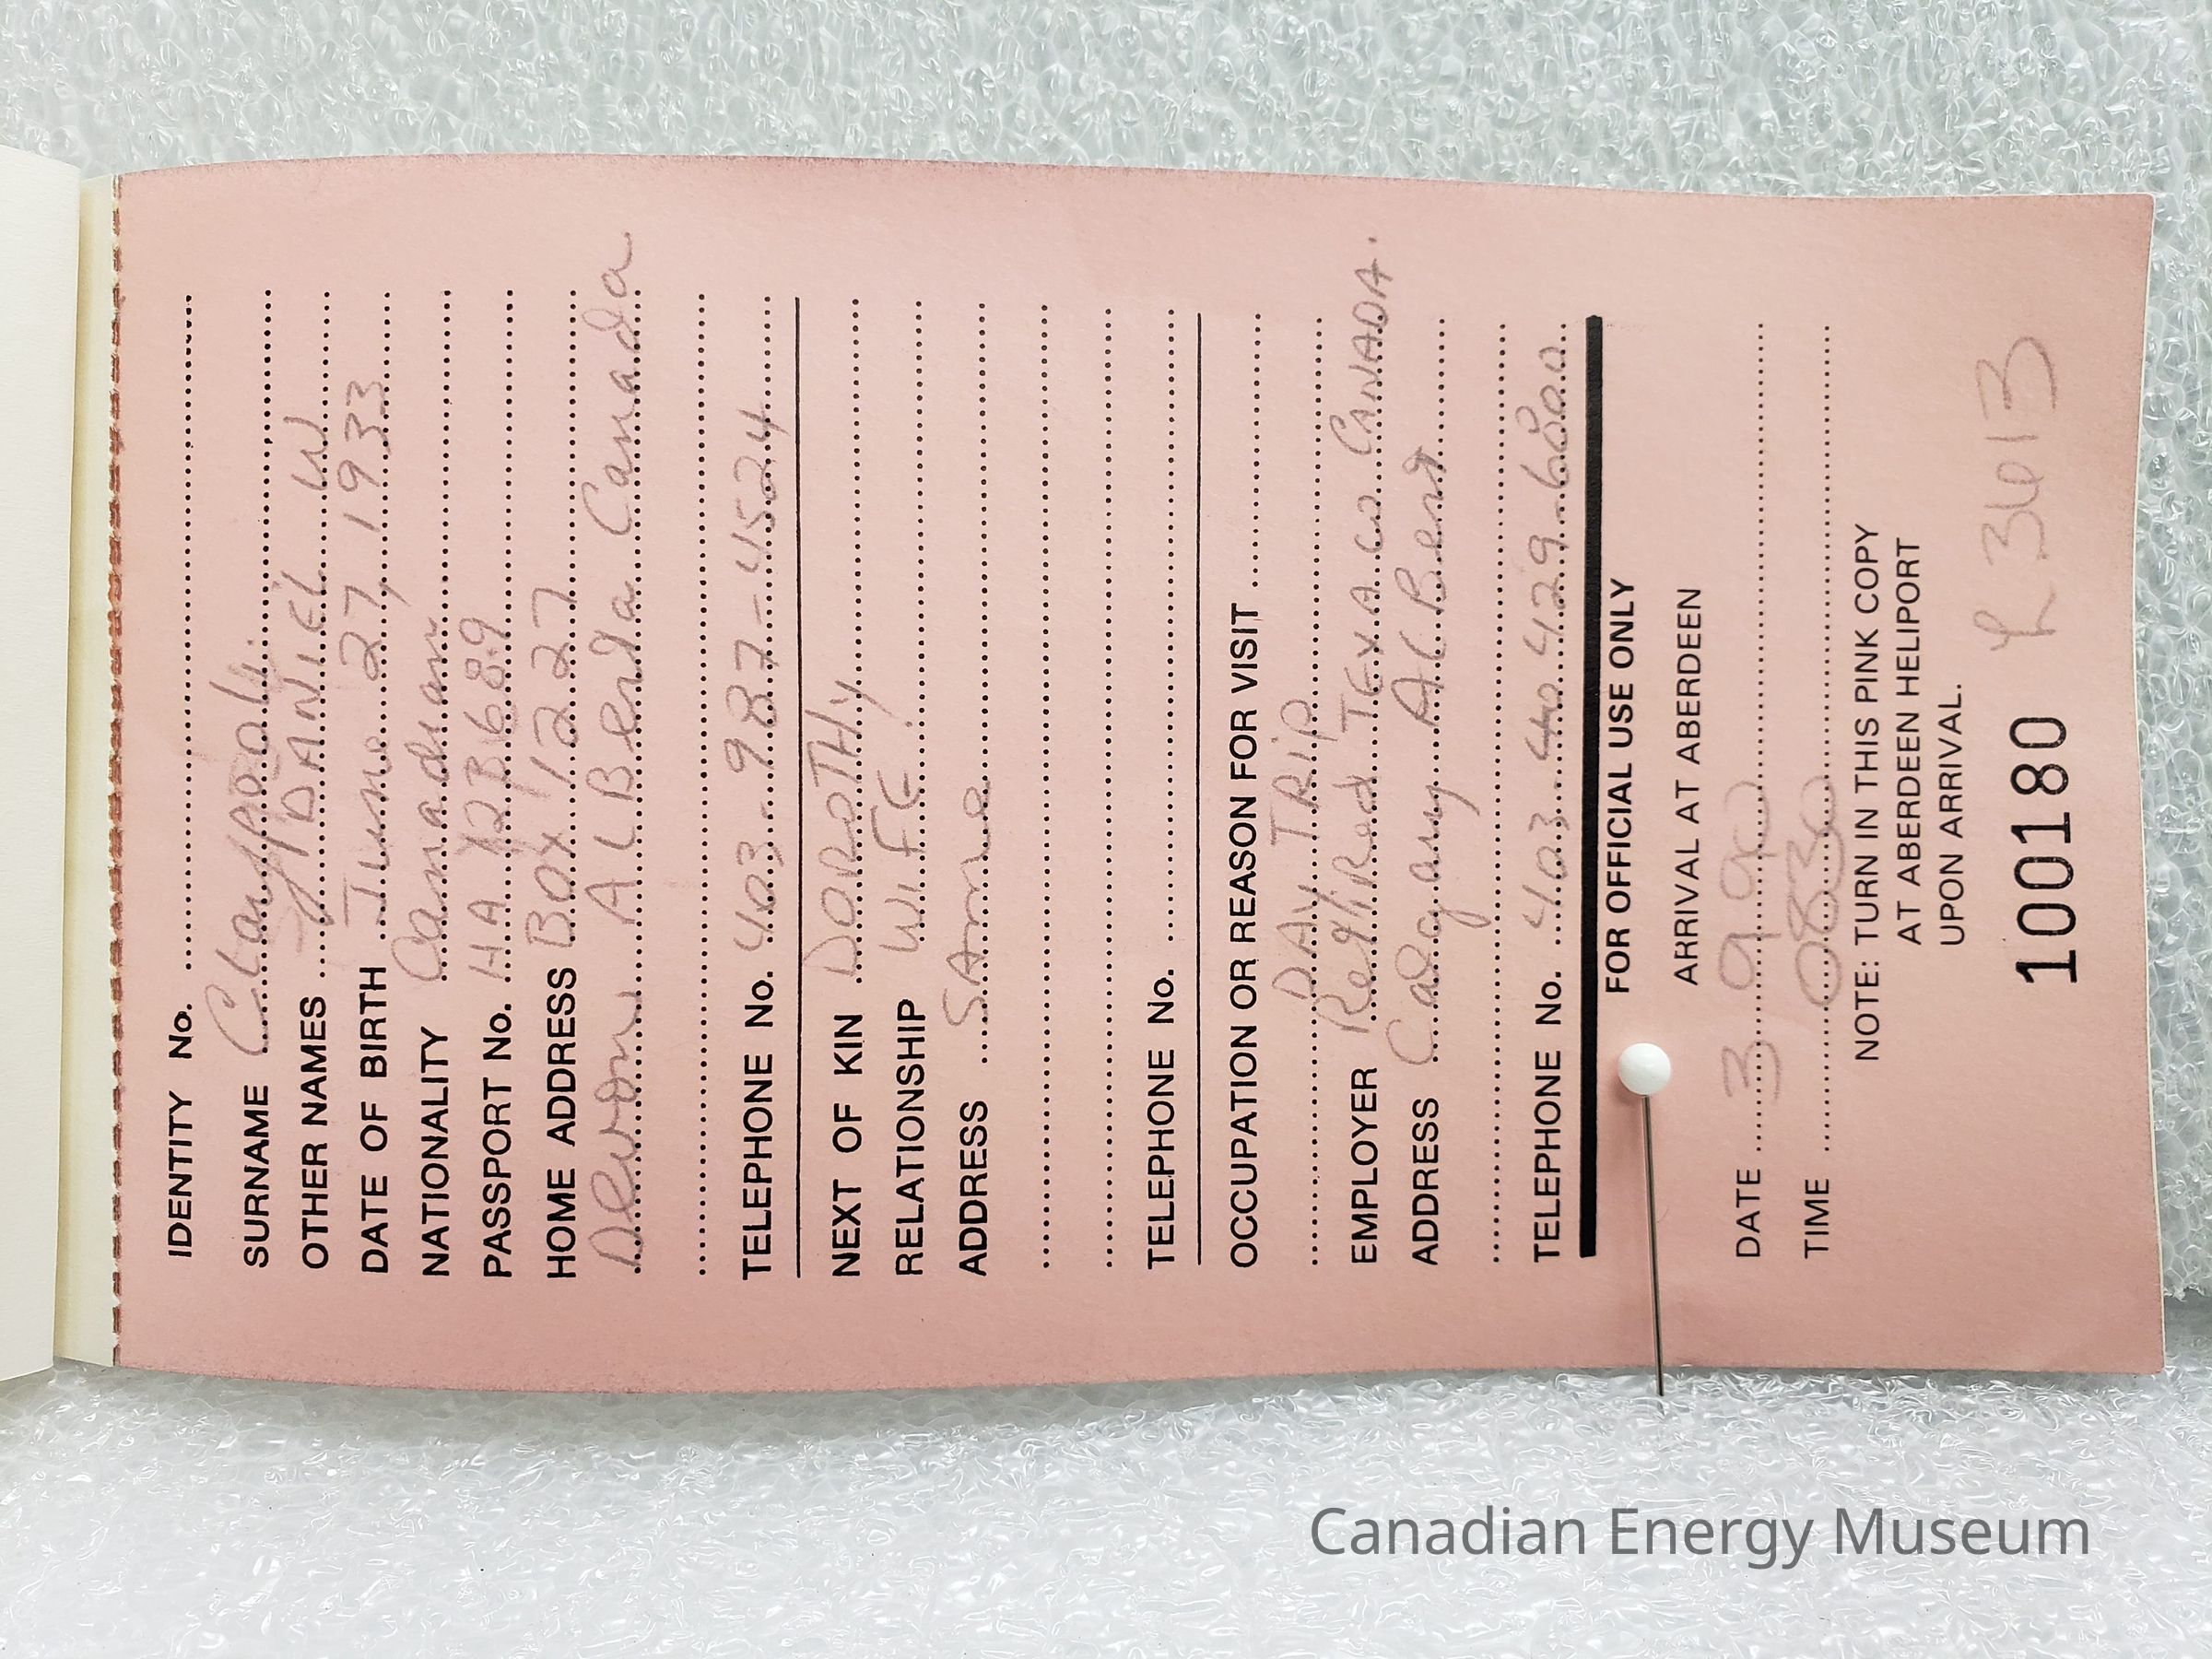 IDENTITY No.
SURNAME Claypool
OTHER NAMES DANIEL W
DATE OF BIRTH June 27, 1933
NATIONALITY Canadian
PASSPORT No. HA
HOME ADDRESS Box 1227
Devon ALBerta Canada
TELEPHONE No. 403-987-4524
NEXT OF KIN DOROTHY
RELATIONSHIP WIFE
ADDRESS SAme
TELEPHONE No.
OCCUPATION OR REASON FOR VISIT
DAY TRIP
EMPLOYER Retired TEXACO CANADA.
ADDRESS Calgary ALBert
TELEPHONE No. 403 429-6800
FOR OFFICIAL USE ONLY
ARRIVAL AT ABERDEEN
DATE 3 9 90
TIME 0830
NOTE: TURN IN THIS PINK COPY
AT ABERDEEN HELIPORT
UPON ARRIVAL.
100180
Canadian Energy Museum